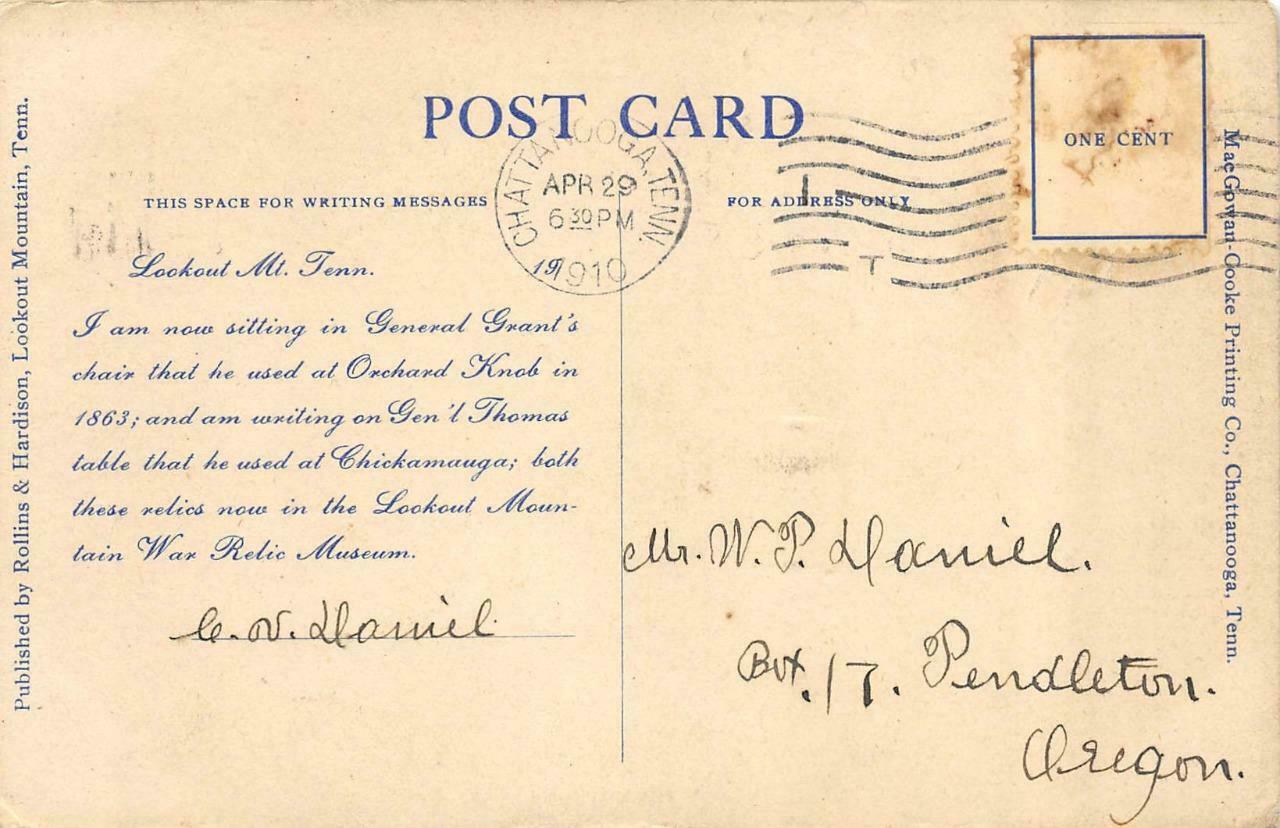 POST CARD
THIS SPACE FOR WRITING MESSAGES
FOR ADDRESS ONLY
ONE CENT
CHATTANOOGA, TENN.
APR 29
6 30 PM
1910
19
T
Lookout Mt. Tenn.
I am now sitting in General Grant's
chair that he used at Orchard Knob in
1863; and am writing on Gen'l Thomas
table that he used at Chickamauga; both
these relics now in the Lookout Moun-
tain War Relic Museum.
C. V. Daniel
Mr. W. P. Daniel.
Box. 17. Pendleton.
Oregon.
Published by Rollins & Hardison, Lookout Mountain, Tenn.
MacGowan-Cooke Printing Co., Chattanooga, Tenn.